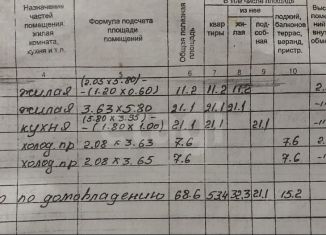 Назначение частей помещения: жилая комната, кухня и т.п.
Формула подсчета площади помещений
Общая полезная площадь
В том числе площадь
из нее
квартиры
жилая
подсобная
лоджий, балконов террас, веранд, пристр.
4 5 6 7 8 9 10
жилая (2.05×5.80)-
-(1.20×0.60) 11.2 11.2 11.2
жилая 3.63×5.80 21.1 21.1 21.1
кухня (5.80×3.95)-
-(1.80×1.00) 21.1 21.1 21.1
холод.пр 2.08 × 3.63 7.6 7.6
холод.пр 2.08 × 3.65 7.6 7.6
по домовладению 68.6 53.4 32.3 21.1 15.2